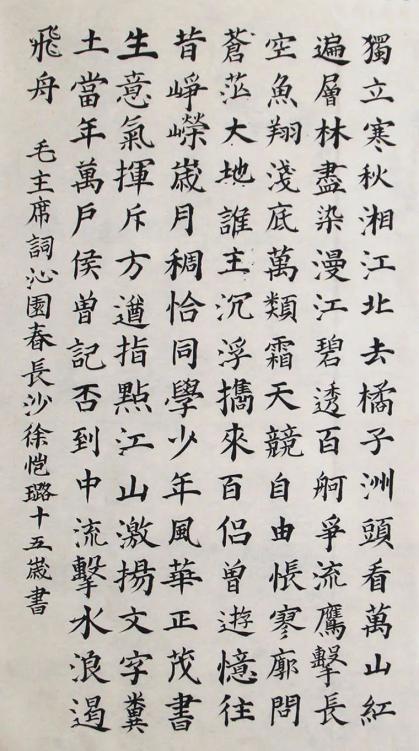 獨立寒秋湘江北去橘子洲頭看萬山紅
遍層林盡染漫江碧透百舸爭流鷹擊長
空魚翔淺底萬類霜天競自由悵寥廓問
蒼茫大地誰主沉浮攜來百侶曾遊憶往
昔崢嶸歲月稠恰同學少年風華正茂書
生意氣揮斥方遒指點江山激揚文字糞
土當年萬戶侯曾記否到中流擊水浪遏
飛舟 毛主席詞沁園春長沙徐恺璐十五歲書